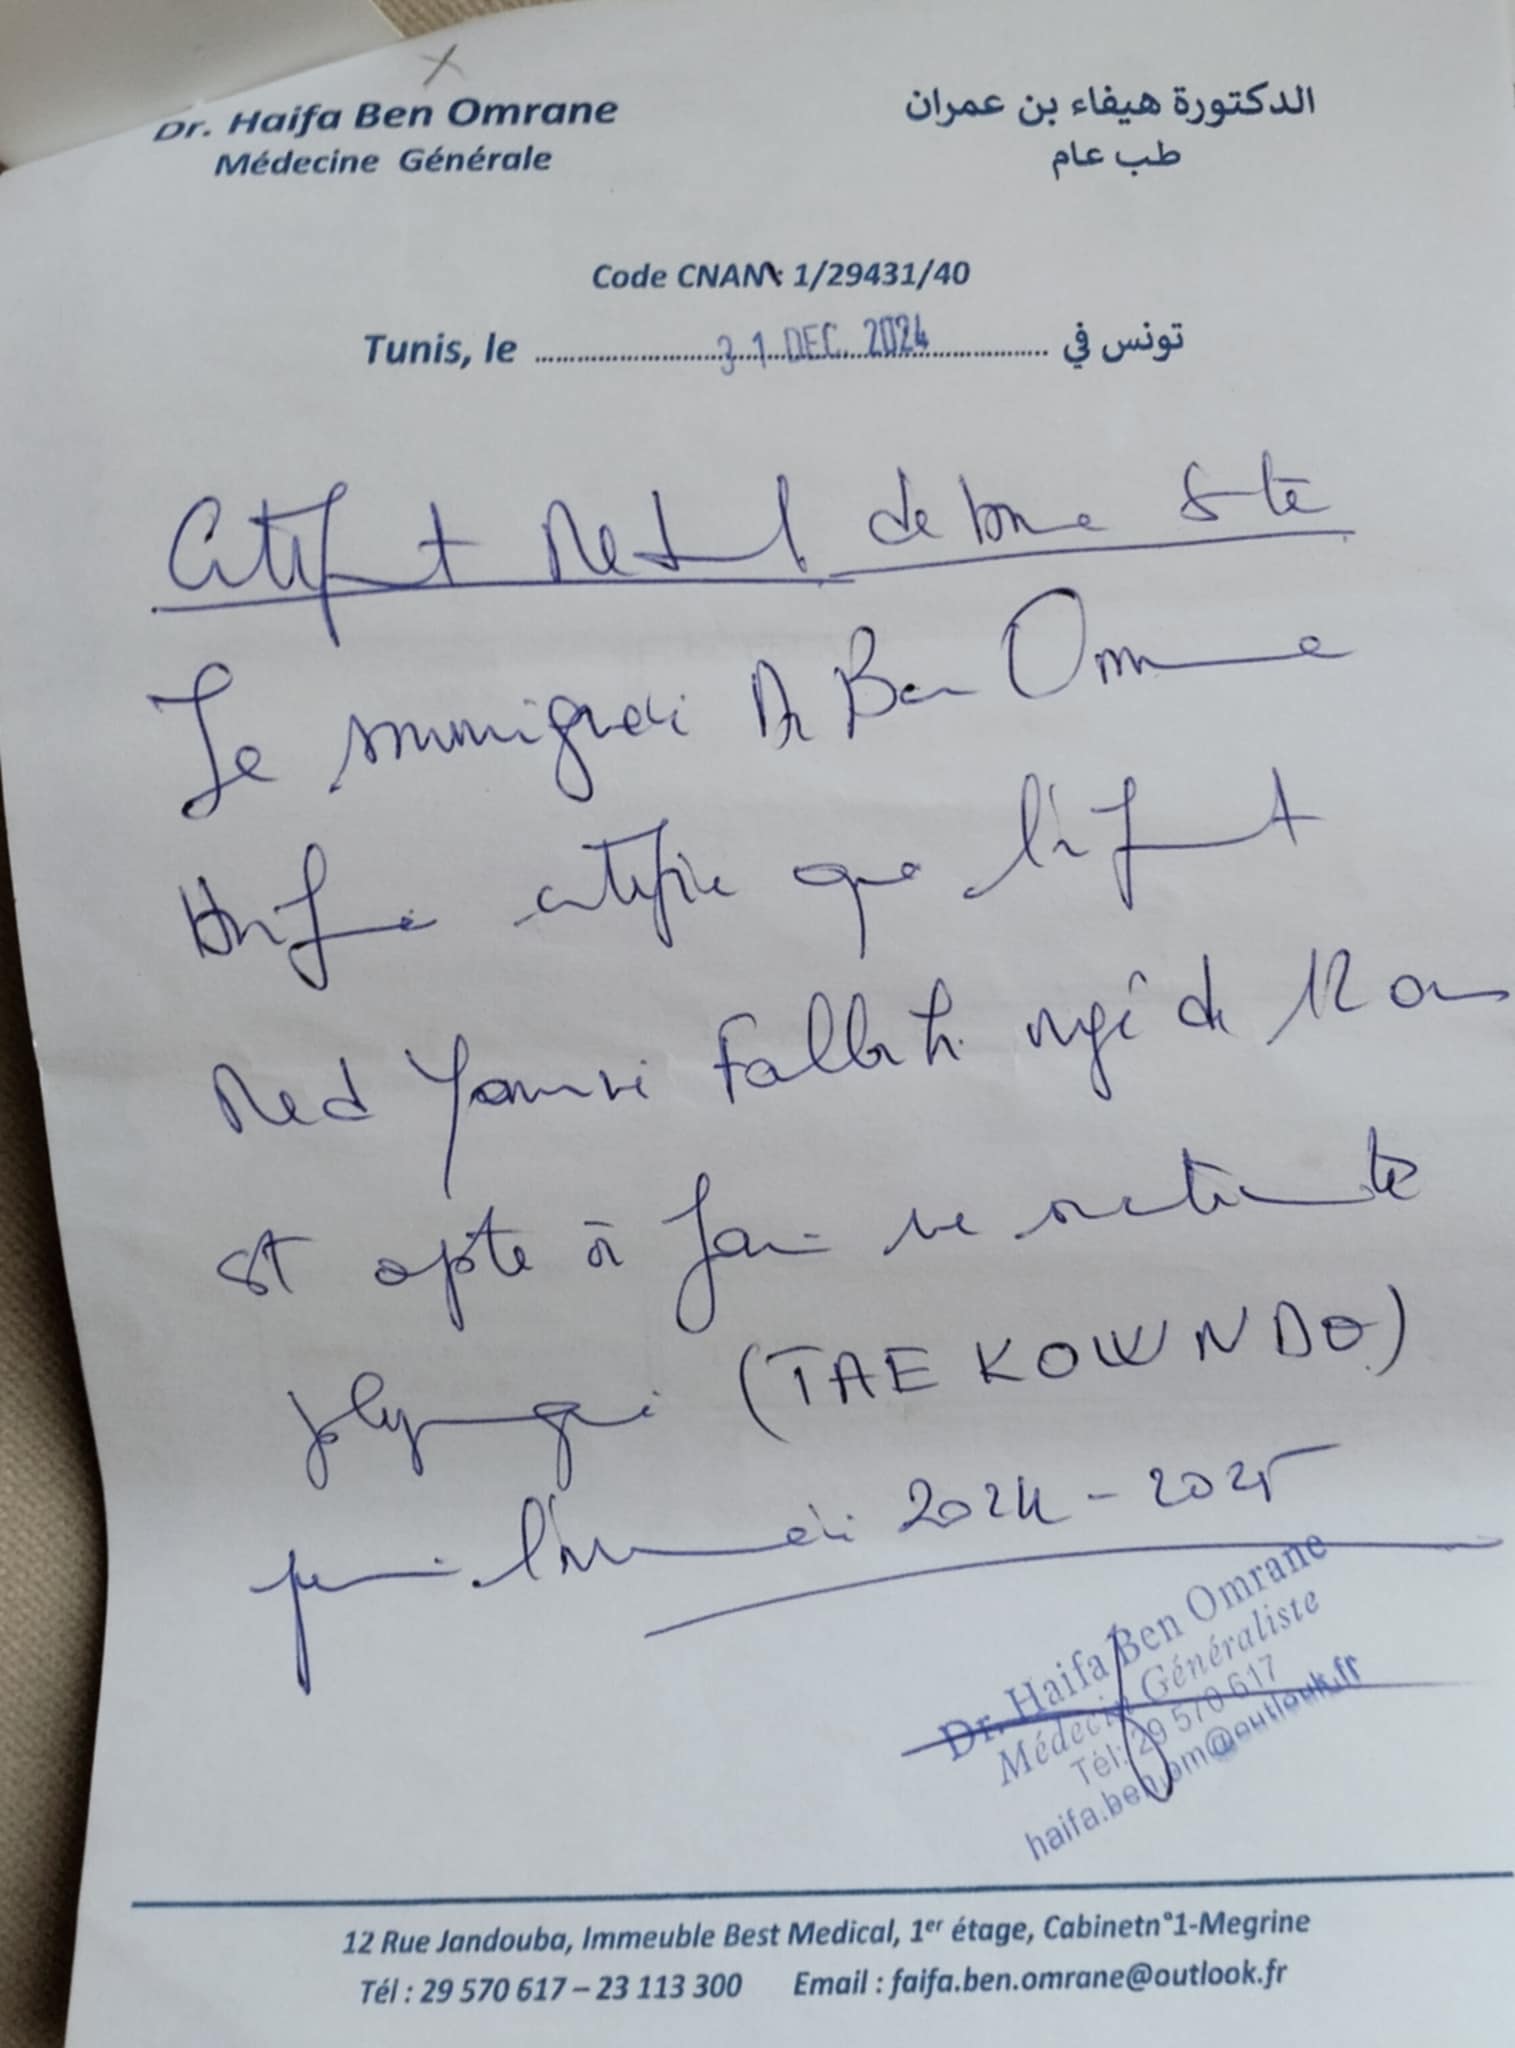 Dr. Haifa Ben Omrane
Médecine Générale
الدكتورة هيفاء بن عمران
طب عام
Code CNAM: 1/29431/40
Tunis, le 31 DEC. 2024 تونس في
Certificat Medical de bonne Santé
Je soussignée Dr Ben Omrane
Haifa certifie que l'enfant
Med Yamine Fallah agé de 12 ans
est apte à faire une
(TAEKOWNDO)
pour l'année 2024-2025
Dr. Haifa Ben Omrane
Médecin Généraliste
Tél: 29 570 617
haifa.ben.om@outlouk.fr
12 Rue Jandouba, Immeuble Best Medical, 1er étage, Cabinetn°1-Megrine
Tél : 29 570 617 – 23 113 300 Email : faifa.ben.omrane@outlook.fr